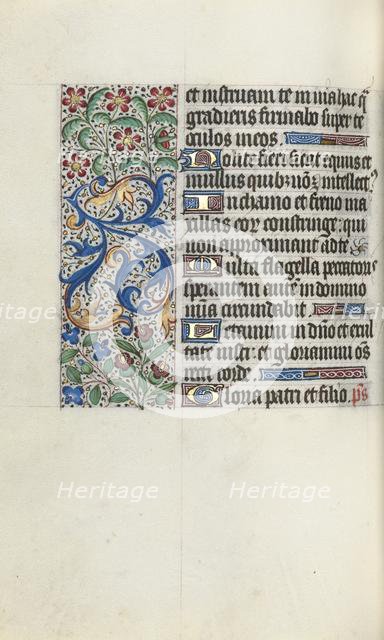 et instruam te in via hac q̄
gradieris firmabo super te
oculos meos.
Nolite fieri sicut equus et
mulus quib; nō ē intellect9
In chamo et freno ma
xillas eoꝝ constringe: qui
non aproximant ad te
Multa flagella peccatoris
sperantem autē in domino
mīa circundabit.
Letamini in dn̄o et exul
tate iusti: et gloriamini oēs
recti corde.
Gloria patri et filio. ps̄
Heritage Heritage
Heritage Heritage
Heritage Heritage